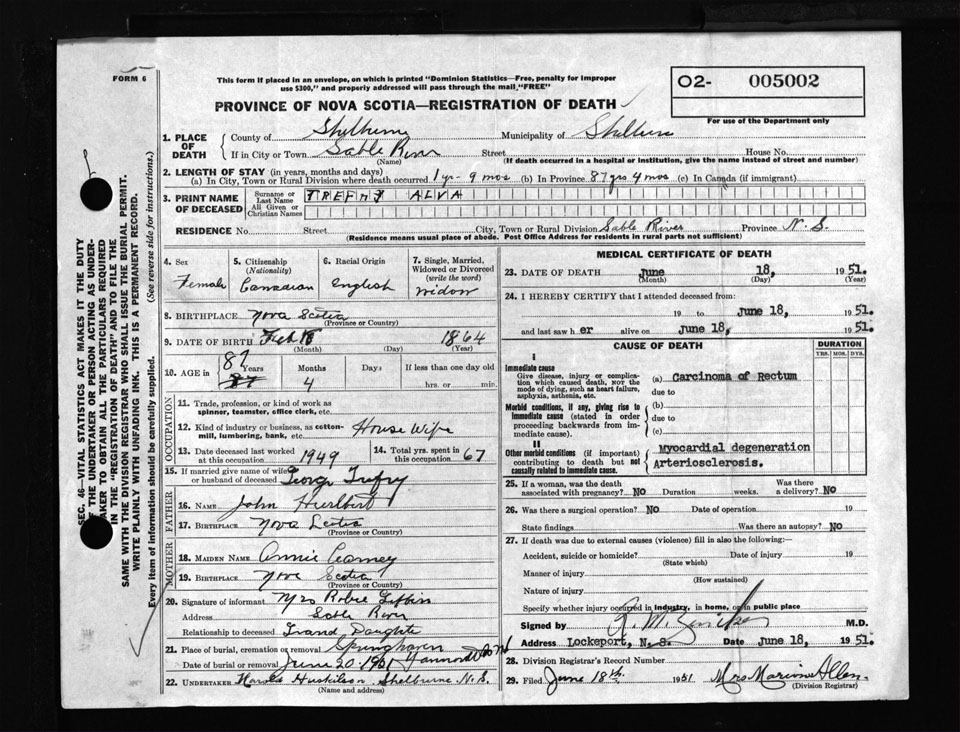 FORM 6
This form if placed in an envelope, on which is printed "Dominion Statistics—Free, penalty for improper
use $300," and properly addressed will pass through the mail, "FREE"
PROVINCE OF NOVA SCOTIA—REGISTRATION OF DEATH
O2- 005002
For use of the Department only
1. PLACE OF DEATH
County of Shelburne Municipality of Shelburne
If in City or Town Sable River Street House No.
(Name) (If death occurred in a hospital or institution, give the name instead of street and number)
2. LENGTH OF STAY (in years, months and days)
(a) In City, Town or Rural Division where death occurred 1 yr - 9 mos (b) In Province 87 yrs 4 mos (c) In Canada (if immigrant)
3. PRINT NAME OF DECEASED
Surname or Last Name TREFRY ALVA
All Given or Christian Names
RESIDENCE No. Street City, Town or Rural Division Sable River Province N. S.
(Residence means usual place of abode. Post Office Address for residents in rural parts not sufficient)
4. Sex Female
5. Citizenship (Nationality) Canadian
6. Racial Origin English
7. Single, Married, Widowed or Divorced (write the word) widow
8. BIRTHPLACE Nova Scotia
(Province or Country)
9. DATE OF BIRTH Feb 1864
(Month) (Day) (Year)
10. AGE in 87 Years Months 4 Days If less than one day old
hrs. or min.
OCCUPATION
11. Trade, profession, or kind of work as
spinner, teamster, office clerk, etc.
12. Kind of industry or business, as cotton-
mill, lumbering, bank, etc. House Wife
13. Date deceased last worked at this occupation 1949
14. Total yrs. spent in this occupation 67
15. If married give name of wife
or husband of deceased George Trefry
FATHER
16. Name John Hurlbert
17. Birthplace Nova Scotia
(Province or Country)
MOTHER
18. Maiden Name Annie
19. Birthplace Nova Scotia
(Province or Country)
20. Signature of informant Mrs Robie
Address Sable River
Relationship to deceased Grand Daughter
21. Place of burial, cremation or removal Springhaven
Date of burial or removal June 20 1951 Yarmouth
22. UNDERTAKER Harold Huskilson Shelburne N.S.
(Name and address)
MEDICAL CERTIFICATE OF DEATH
23. DATE OF DEATH June 18, 1951.
(Month) (Day) (Year)
24. I HEREBY CERTIFY that I attended deceased from:
19 to June 18, 1951.
and last saw h er alive on June 18, 1951.
CAUSE OF DEATH
DURATION
YRS. MOS. DYS.
I
Immediate cause
Give disease, injury or compli-
cation which caused death, NOT the
mode of dying, such as heart failure,
asphyxia, asthenia, etc.
(a) Carcinoma of Rectum
due to
Morbid conditions, if any, giving rise to
immediate cause (stated in order
proceeding backwards from im-
mediate cause).
(b)
due to
(c)
II
Other morbid conditions (if important)
contributing to death but not
causally related to immediate cause.
Myocardial degeneration
Arteriosclerosis.
25. If a woman, was the death
associated with pregnancy? No Duration weeks. Was there
a delivery? No
26. Was there a surgical operation? No Date of operation 19
State findings Was there an autopsy? No
27. If death was due to external causes (violence) fill in also the following:—
Accident, suicide or homicide? Date of injury 19
(State which)
Manner of injury
(How sustained)
Nature of injury
Specify whether injury occurred in industry, in home, or in public place
Signed by M.D.
Address Lockeport, N. S. Date June 18, 1951.
28. Division Registrar's Record Number
29. Filed June 18th 1951 Mrs Marion Allen.
(Division Registrar)
SEC. 46—VITAL STATISTICS ACT MAKES IT THE DUTY
OF THE UNDERTAKER OR PERSON ACTING AS UNDER-
TAKER TO OBTAIN ALL THE PARTICULARS REQUIRED
IN THE "REGISTRATION OF DEATH" AND TO FILE THE
SAME WITH THE DIVISION REGISTRAR WHO SHALL ISSUE THE BURIAL PERMIT.
WRITE PLAINLY WITH UNFADING INK. THIS IS A PERMANENT RECORD.
Every item of information should be carefully supplied. (See reverse side for instructions.)